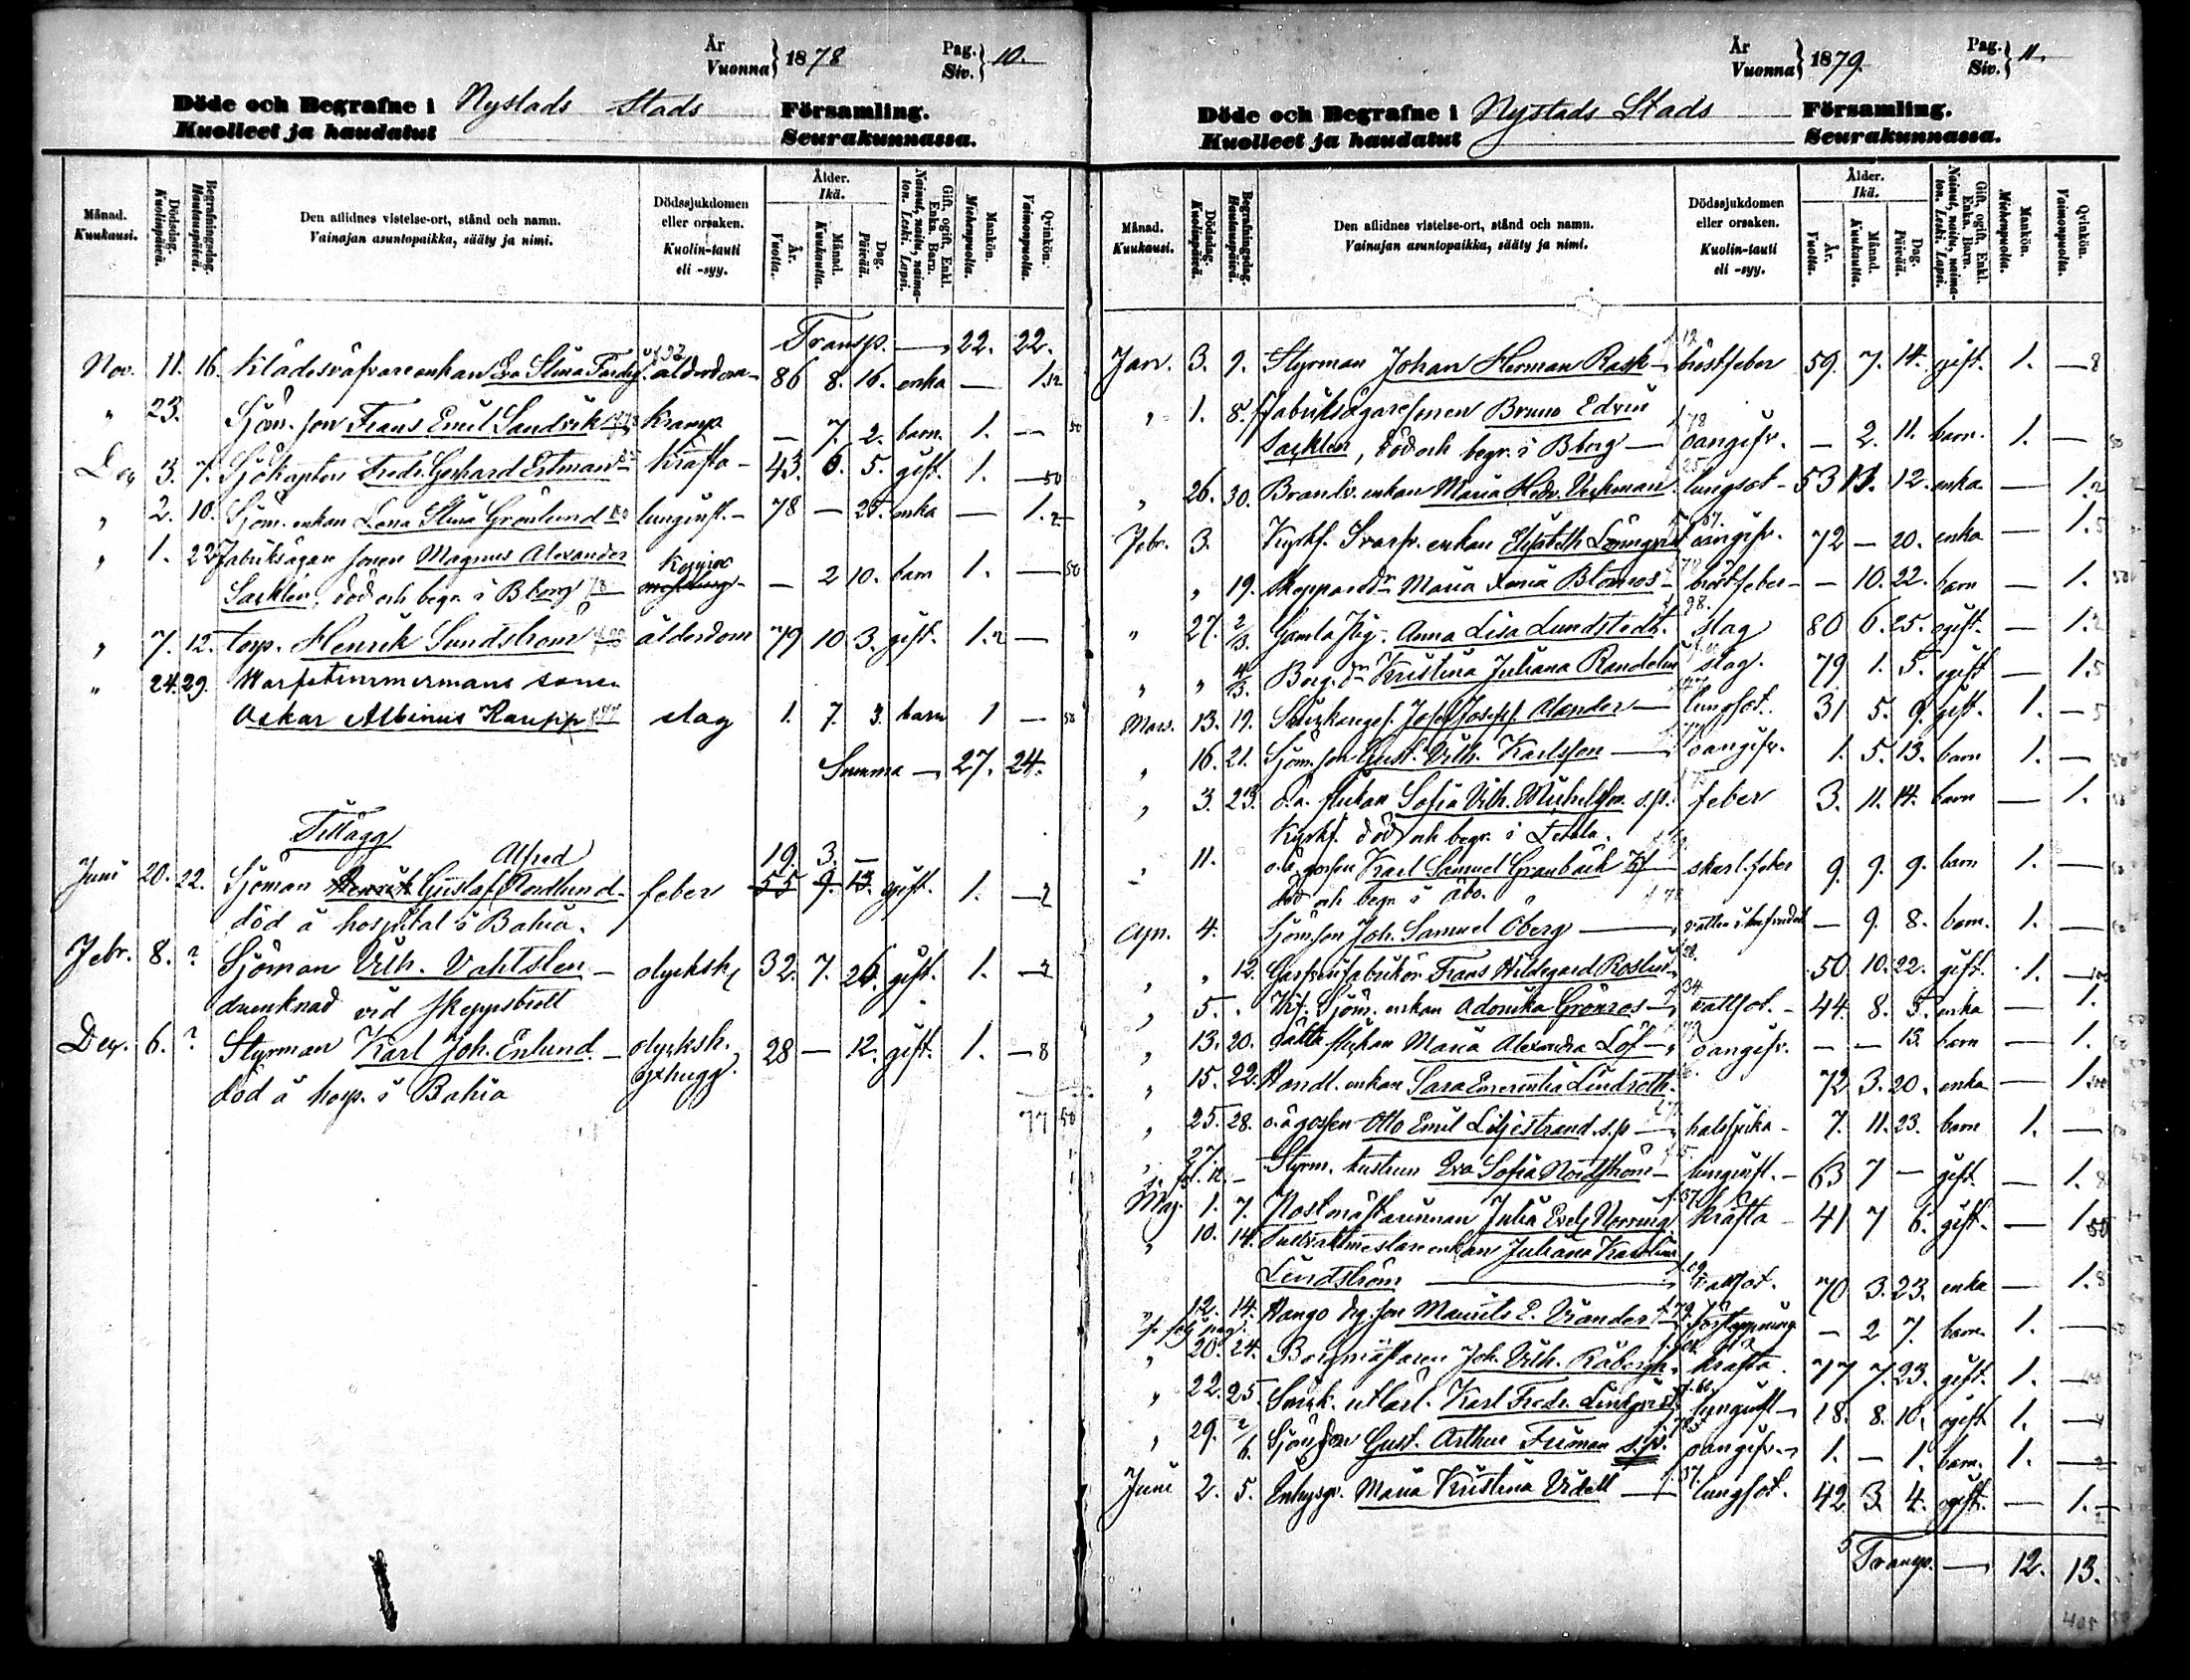 År
Vuonna } 1878
Pag.
Siv. } 10.
Döde och Begrafne i Nystads Stads Församling.
Kuolleet ja haudatut Seurakunnassa.
Månad. Kuukausi.
Dödsdag. Kuolinpäivä.
Begrafningsdag. Hautauspäivä.
Den aflidnes vistelse-ort, stånd och namn.
Vainajan asuntopaikka, sääty ja nimi.
Dödssjukdomen eller orsaken.
Kuolin-tauti eli -syy.
Ålder. Ikä.
År. Vuotta.
Månad. Kuukautta.
Dag. Päivää.
Gift, ogift, Enkl. Enka. Barn.
Nainut, naitu, naimaton. Leski. Lapsi.
Mankön. Miehenpuolta.
Qvinkön. Vaimonpuolta.
Transp. — 22. 22.
Nov. 11. 16. Klädesväfvareenkan Eva Stina ålderdom 86 8. 16. enka — 1. 12
" 23. Sjöm. son Frans Emil Sandvik kramp — 7. 2. barn. 1. — 50
Dec 3. 7. Sjökapten Fredr. Gerhard Ertman kräfta 43. 6. 5. gift. 1. — 50
" 2. 10. Sjöm. enkan Lena Stina Grönlund lunginfl. 78 — 25. enka — 1. 2
" 1. 22 Fabriksägare sonen Magnus Alexander
Sacklén, död och begr. i Bborg — 2 10. barn 1. — 50
" 7. 12. torp. Henrik Sundstrom ålderdom 79 10 3. gift. 1. 2 —
" 24. 29. Warfstimmermans sonen
Oskar Albinus Kaupp slag 1. 7. 3. barn 1 — 50
Summa — 27. 24.
Tillägg
Alfred
19. 3. —
Juni 20. 22. Sjöman Henrik Gustaf Nordlund feber 55 9. 13. ogift. 1. — 2
död å hospital i Bahia.
Febr. 8. ? Sjöman Vilh. Vahtsten olycksh. 32. 7. 26. gift. 1. —
drunknad vid skeppsbrott
Dec. 6. ? Styrman Karl Joh. Enlund olycksh. 28 — 12. gift. 1. — 8
död å hosp. i Bahia
77 50
År
Vuonna } 1879.
Pag.
Siv. } 11.
Döde och Begrafne i Nystads Stads Församling.
Kuolleet ja haudatut Seurakunnassa.
Månad. Kuukausi.
Dödsdag. Kuolinpäivä.
Begrafningsdag. Hautauspäivä.
Den aflidnes vistelse-ort, stånd och namn.
Vainajan asuntopaikka, sääty ja nimi.
Dödssjukdomen eller orsaken.
Kuolin-tauti eli -syy.
Ålder. Ikä.
År. Vuotta.
Månad. Kuukautta.
Dag. Päivää.
Gift, ogift, Enkl. Enka. Barn.
Nainut, naitu, naimaton. Leski. Lapsi.
Mankön. Miehenpuolta.
Qvinkön. Vaimonpuolta.
Jan. 3. 9. Styrman Johan Herman Rask bröstfeber 59. 7. 14. gift. 1. — 8
" 1. 8. Fabriksägaresonen Bruno Edvin
Sacklén, död och begr. i Bborg — oangifv. — 2. 11. barn. 1. — 50
" 26. 30. Brandv. enkan Maria Hedv. Veckman lungsot 53 11. 12. enka — 1. 2
Febr. 3. Kyrkf. Svarfv. enkan Elisabeth Lönnqvist oangifv. 72 — 20. enka — 1. 5
" 19. Skeppared:r Maria Blomros bröstfeber — 10. 22. barn — 1. 50
" 27. 2/3. Gamla Pig. Anna Lisa Lundstedt. slag 80 6. 25. ogift. — 1. 2
" " 4/3. Borg. d:r Kristina Juliana Randelin slag. 79 1. 5. ogift — 1. 5
Mars. 13. 19. Josef Josefss. Alander — lungsot. 31 5. 9. gift. 1. — 5
" 16. 21. Sjöm. son Gust. Vilh. Karlsson — oangifv. 1. 5. 13. barn 1. — 50
" 3. 23. o.ä. flickan Sofia Vilh. Michelsson s.p. feber 3. 11. 14. barn — 1. 50
Kyrkf. död och begr. i Letala.
" 11. o.ä. gossen Karl Samuel Granbäck Kf skarl. feber 9. 9. 9. barn 1. — 50
död och begr. i Åbo.
Apr. 4. Sjöm. son Joh. Samuel Öberg — vatten i hufvudet — 9. 8. barn. 1. — 50
" 12. Frans Hildegard Roslin 50 10. 22. gift. 1. —
" 5. Kf. Sjöm. enkan Adonika Grönros vattsot. 44. 8. 5. enka — 1.
" 13. 20. flickan Maria Alexandra Löf oangifv. — — 13. barn — 1. 50
" 15. 22. Handl. enkan Sara Emerentia Lindroth. 72 3. 20. enka — 1.
" 25. 28. o.ä gossen Otto Emil Liljestrand. s.p halssjuka 7. 11. 23. barn 1. —
" 27. Styrm. hustrun Eva Sofia Nordström lunginfl. 63 7 — gift. — 1. 8
Maj. 1. 7. Postmästarinnan Julia Evel. Norring kräfta 41 7 6. gift. — 1. 50
" 10. 14. Tullvaktmestareenkan Juliana Karolina
Lindström — vattsot. 70 3. 23. enka — 1. 8
12. 14. Hangö son E. Viander — 2 7. barn. 1. — 50
" 20. 24. Borgmästaren Joh. Vilh. Råbergh kräfta. 77 7. 23. gift. 1. —
" 22. 25. Karl Fredr. Lindqvist lunginfl. 18. 8. 10. ogift 1. —
" 29. 2/6. Sjöm. son Gust. Arthur Friman s.p. oangifv. 1. — 1. barn. 1. —
Juni 2. 5. Inhysqv. Maria Kristina Videll — lungsot. 42 3. 4. ogift. — 1.
Transp. — 12. 13.
405